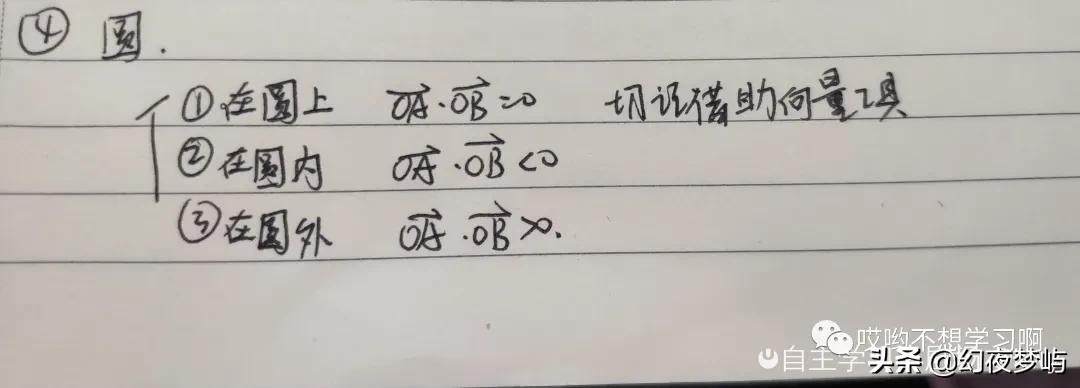 ④ 圆.
①在圆上 \overrightarrow{OA}·\overrightarrow{OB}=0 切记借助向量工具
②在圆内 \overrightarrow{OA}·\overrightarrow{OB}<0
③在圆外 \overrightarrow{OA}·\overrightarrow{OB}>0.
哎哟不想学习啊
自主学
头条 @幻夜梦屿